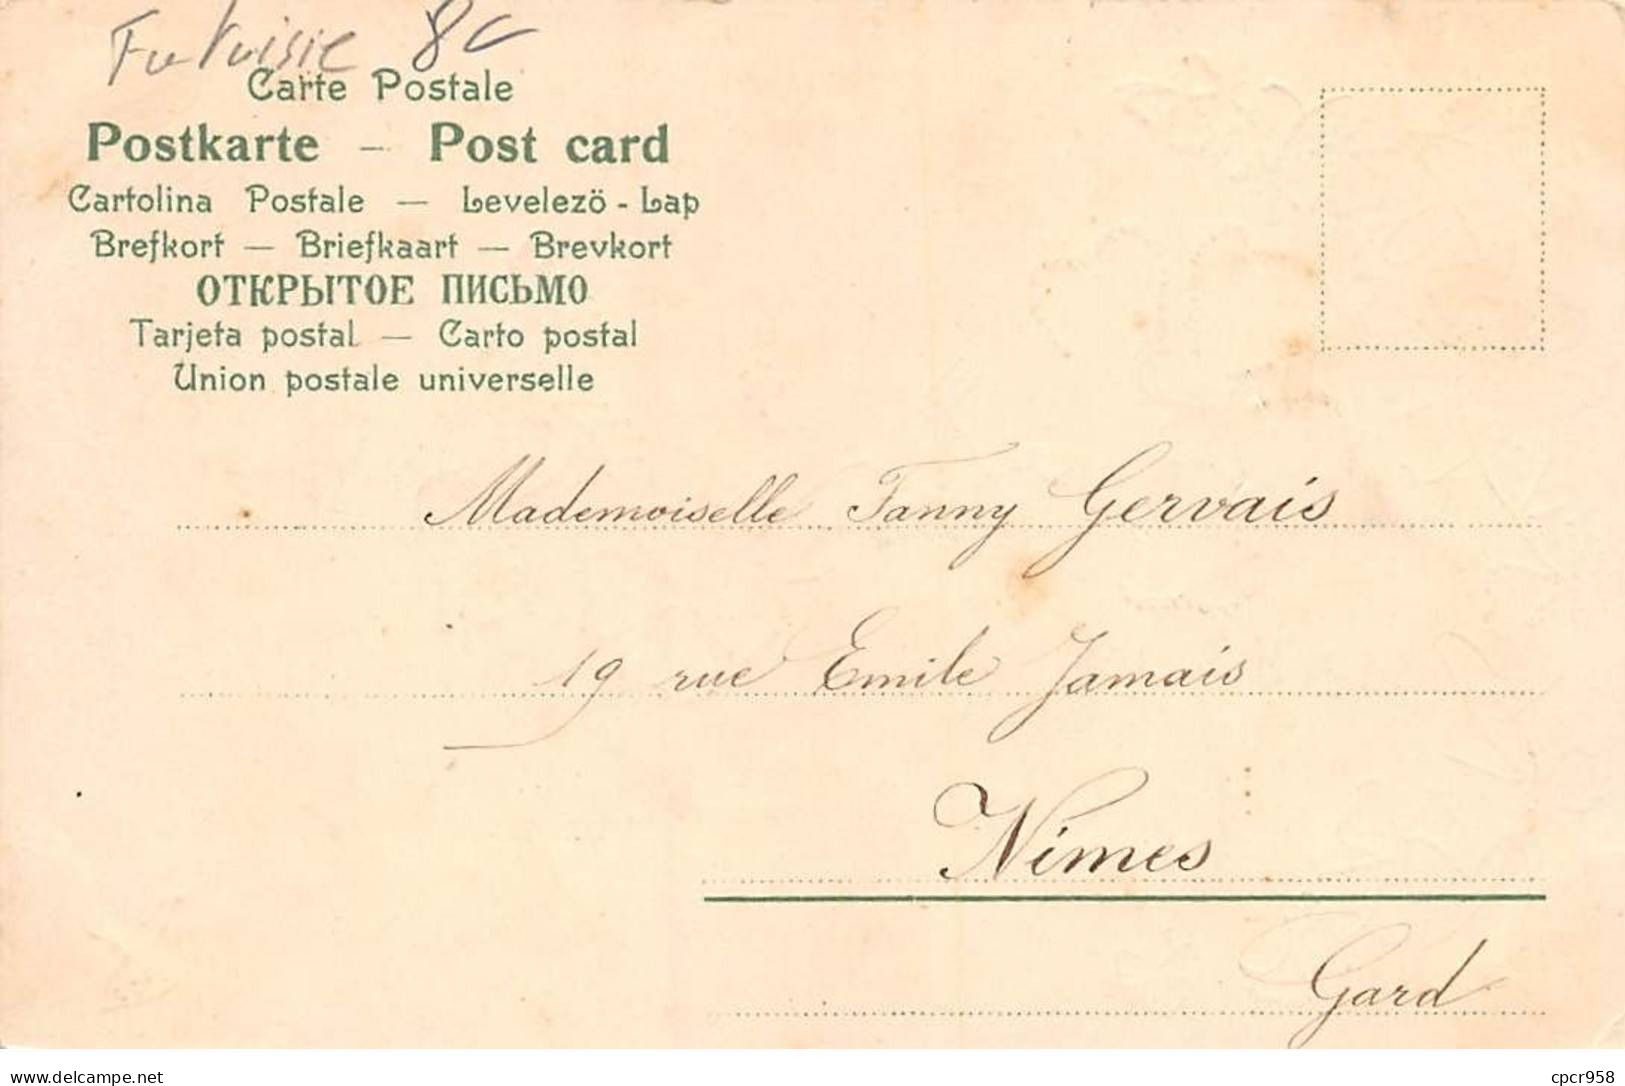 8c
Carte Postale
Postkarte – Post card
Cartolina Postale — Levelezö - Lap
Brefkort — Briefkaart — Brevkort
ОТКРЫТОЕ ПИСЬМО
Tarjeta postal — Carto postal
Union postale universelle
Mademoiselle Fanny Gervais
19 rue Emile Jamais
Nimes
Gard
www.delcampe.net
cpcr958